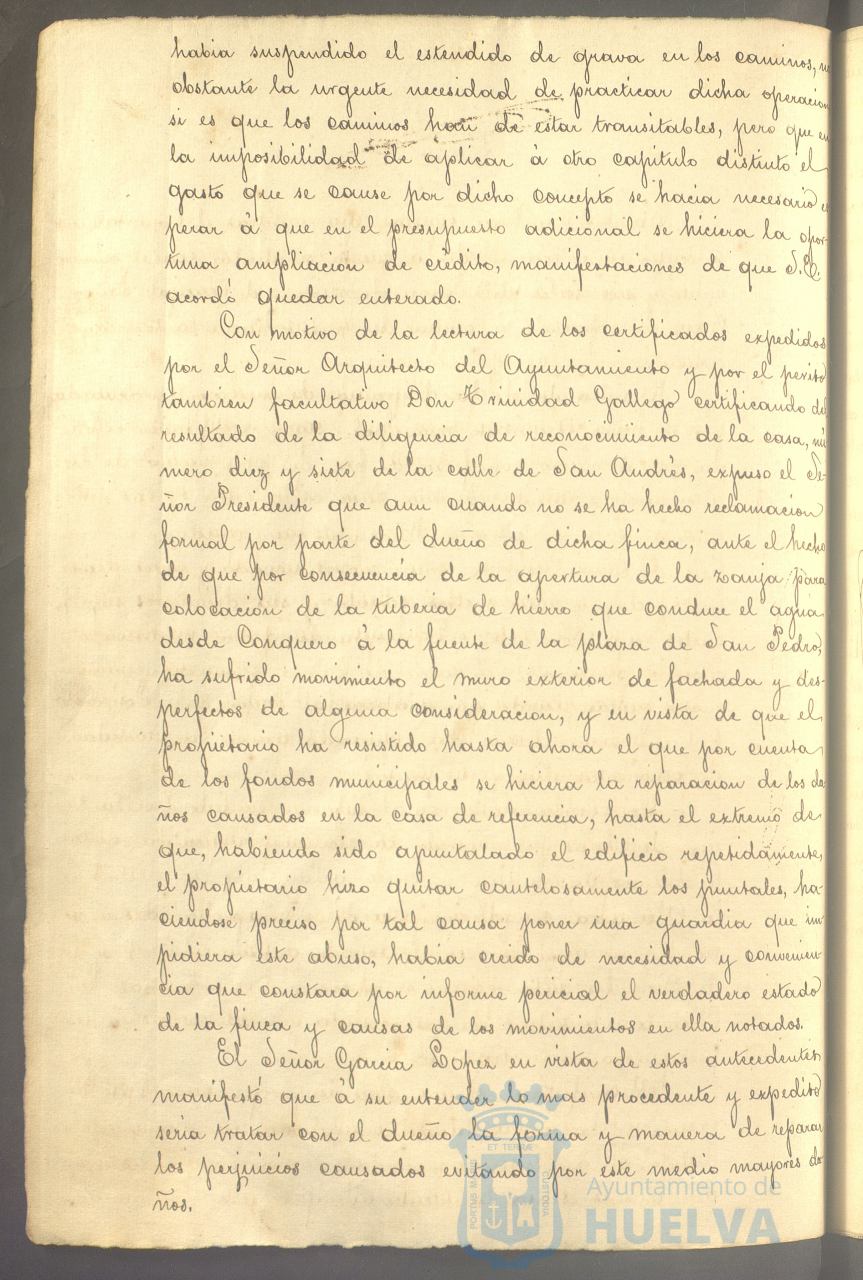 habia suspendido el estendido de grava en los caminos, no
obstante la urgente necesidad de practicar dicha operacion
si es que los caminos han de estar transitables, pero que en
la imposibilidad de aplicar à otro capitulo distinto el
gasto que se cause por dicho concepto se hacia necesario es
perar à que en el presupuesto adicional se hiciera la opor-
tuna ampliacion de crédito, manifestaciones de que S.E.
acordó quedar enterado.
Con motivo de la lectura de los certificados expedidos
por el Señor Arquitecto del Ayuntamiento y por el perito
tambien facultativo Don Trinidad Gallego certificando del
resultado de la diligencia de reconocimiento de la casa, nú
mero diez y siete de la calle de San Andrés, expuso el Se-
ñor Presidente que aun cuando no se ha hecho reclamacion
formal por parte del dueño de dicha finca, ante el hecho
de que por consecuencia de la apertura de la zanja para
colocacion de la tuberia de hierro que conduce el agua
desde Conquero à la fuente de la plaza de San Pedro,
ha sufrido movimiento el muro exterior de fachada y des-
perfectos de alguna consideracion, y en vista de que el
propietario ha resistido hasta ahora el que por cuenta
de los fondos municipales se hiciera la reparacion de los da
ños causados en la casa de referencia, hasta el extremo de
que, habiendo sido apuntalado el edificio repetidamente,
el propietario hizo quitar cautelosamente los puntales, ha-
ciendose preciso por tal causa poner una guardia que im
pidiera este abuso, habia creido de necesidad y convenien-
cia que constara por informe pericial el verdadero estado
de la finca y causas de los movimientos en ella notados.
El Señor Garcia Lopez en vista de estos antecedentes
manifestó que à su entender lo mas procedente y expedito
seria tratar con el dueño la forma y manera de reparar
los perjuicios causados evitando por este medio mayores da-
ños.
Ayuntamiento de
HUELVA